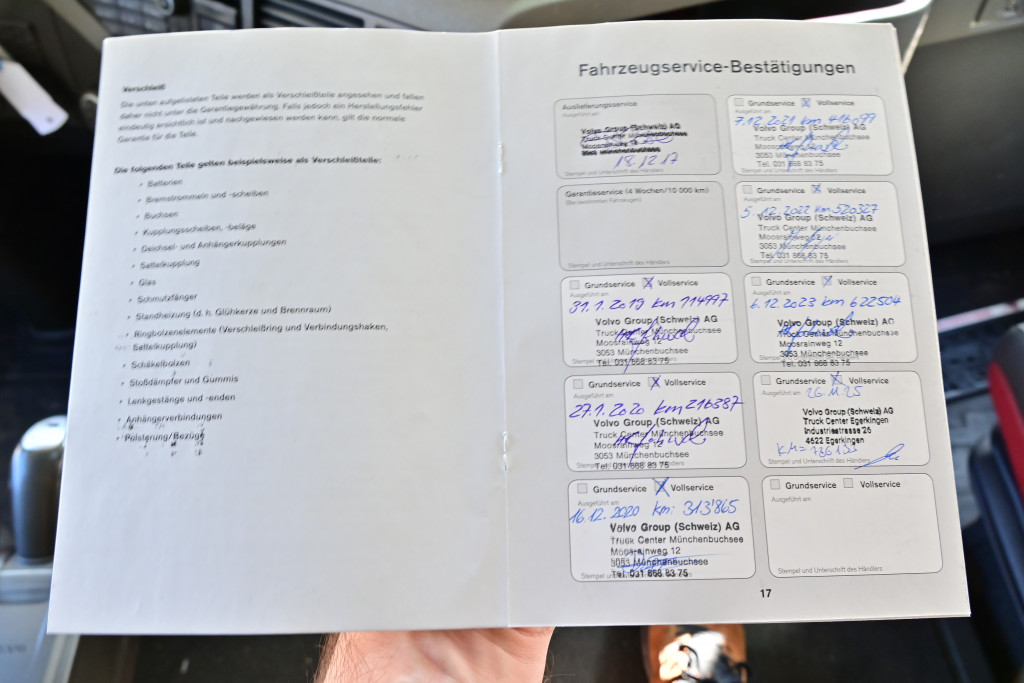 Verschleiß
Die unten aufgelisteten Teile werden als Verschleißteile angesehen und fallen
daher nicht unter die Garantiegewährung. Falls jedoch ein Herstellungsfehler
eindeutig ersichtlich ist und nachgewiesen werden kann, gilt die normale
Garantie für die Teile.
Die folgenden Teile gelten beispielsweise als Verschleißteile:
Batterien
Bremstrommeln und -scheiben
Buchsen
Kupplungsscheiben, -beläge
Deichsel- und Anhängerkupplungen
Sattelkupplung
Glas
Schmutzfänger
Standheizung (d. h. Glühkerze und Brennraum)
Ringbolzenelemente (Verschleißring und Verbindungshaken,
Sattelkupplung)
Schäkelbolzen
Stoßdämpfer und Gummis
Lenkgestänge und -enden
Anhängerverbindungen
Polsterung/Bezüge
Fahrzeugservice-Bestätigungen
Auslieferungsservice
Ausgeführt am
Volvo Group (Schweiz) AG
Truck Center Münchenbuchsee
Moosrainweg 12
3053 Münchenbuchsee
18.12.17
Stempel und Unterschrift des Händlers
Garantieservice (4 Wochen/10 000 km)
(Bei bestimmten Fahrzeugen)
Stempel und Unterschrift des Händlers
Grundservice X Vollservice
Ausgeführt am
31.1.2019 km 114997
Volvo Group (Schweiz) AG
Truck Center Münchenbuchsee
Moosrainweg 12
3053 Münchenbuchsee
Stempel und Unterschrift des Händlers
Tel. 031 868 83 75
Grundservice X Vollservice
Ausgeführt am
27.1.2020 km 216387
Volvo Group (Schweiz) AG
Truck Center Münchenbuchsee
Moosrainweg 12
3053 Münchenbuchsee
Stempel und Unterschrift des Händlers
Tel. 031 868 83 75
Grundservice X Vollservice
Ausgeführt am
16.12.2020 km: 313'865
Volvo Group (Schweiz) AG
Truck Center Münchenbuchsee
Moosrainweg 12
3053 Münchenbuchsee
Stempel und Unterschrift des Händlers
Tel. 031 868 83 75
Grundservice X Vollservice
Ausgeführt am
7.12.2021 km
Volvo Group (Schweiz) AG
Truck Center Münchenbuchsee
Moosrainweg 12
3053 Münchenbuchsee
Tel. 031 868 83 75
Stempel und Unterschrift des Händlers
Grundservice X Vollservice
Ausgeführt am
5.12.2022 km 520327
Volvo Group (Schweiz) AG
Truck Center Münchenbuchsee
Moosrainweg 12
3053 Münchenbuchsee
Tel. 031 868 83 75
Stempel und Unterschrift des Händlers
Grundservice X Vollservice
Ausgeführt am
6.12.2023 km 622504
Volvo Group (Schweiz) AG
Truck Center Münchenbuchsee
Moosrainweg 12
3053 Münchenbuchsee
Stempel und Unterschrift des Händlers
Tel. 031 868 83 75
Grundservice X Vollservice
Ausgeführt am
26.11.25
Volvo Group (Schweiz) AG
Truck Center Egerkingen
Industriestrasse 25
4622 Egerkingen
KM=
Stempel und Unterschrift des Händlers
Grundservice Vollservice
Ausgeführt am
Stempel und Unterschrift des Händlers
17